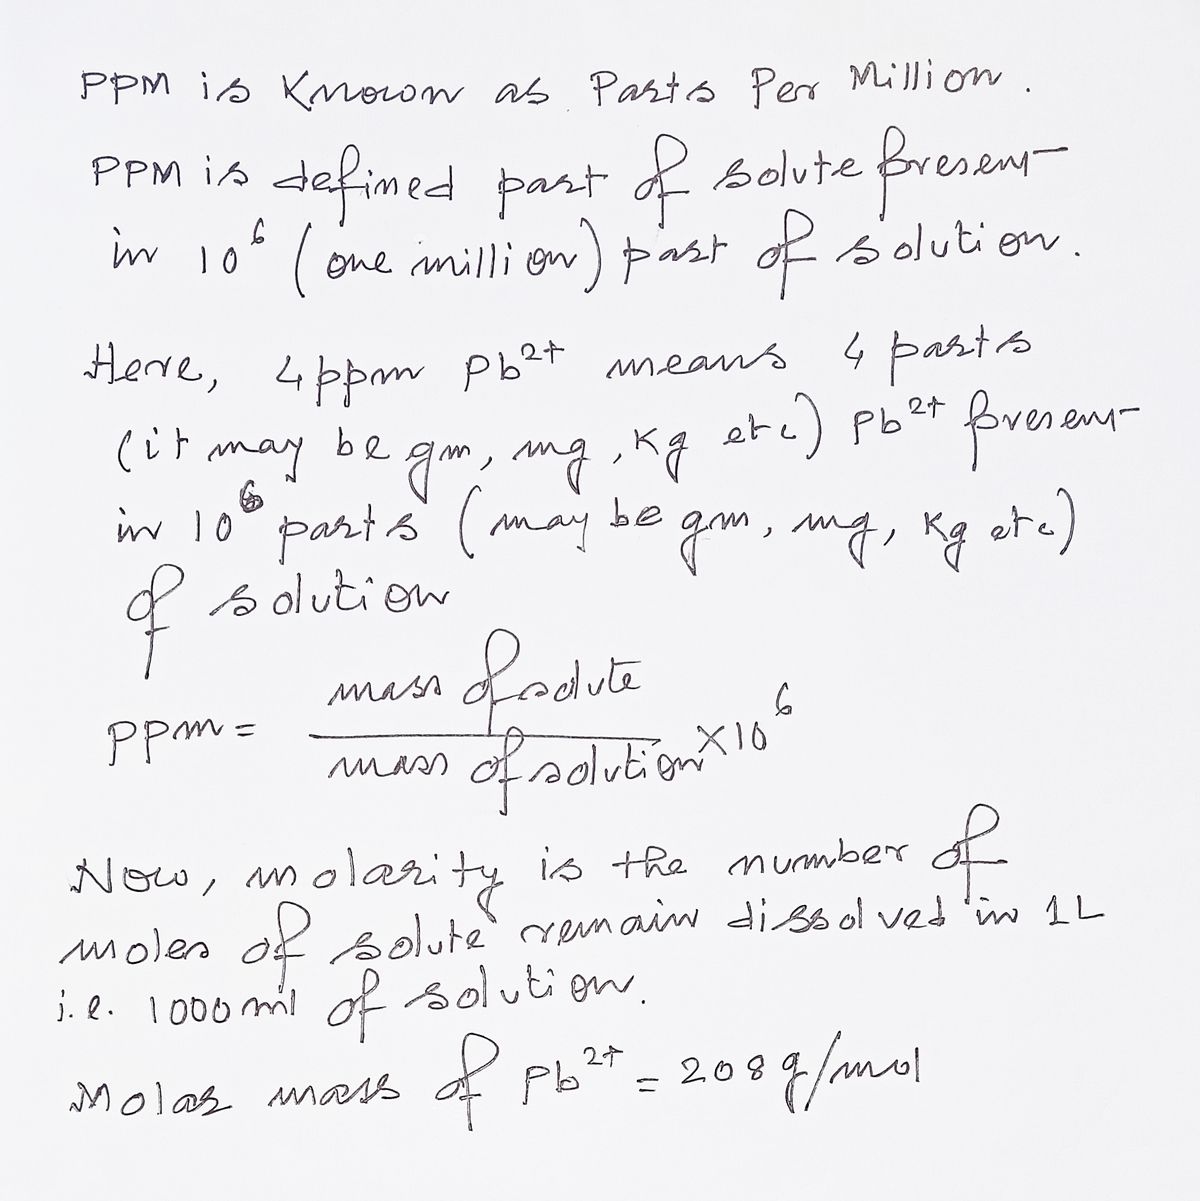 PPM is Known as Parts Per Million.
PPM is defined part of solute present
in 10⁶ (one million) part of solution.
Here, 4ppm Pb²⁺ means 4 parts
(it may be gm, mg, Kg etc) Pb²⁺ present
in 10⁶ parts (may be gm, mg, Kg etc)
of solution
ppm = mass of solute / mass of solution × 10⁶
Now, molarity is the number of
moles of solute remain dissolved in 1L
i.e. 1000 ml of solution.
Molar mass of Pb²⁺ = 208 g/mol